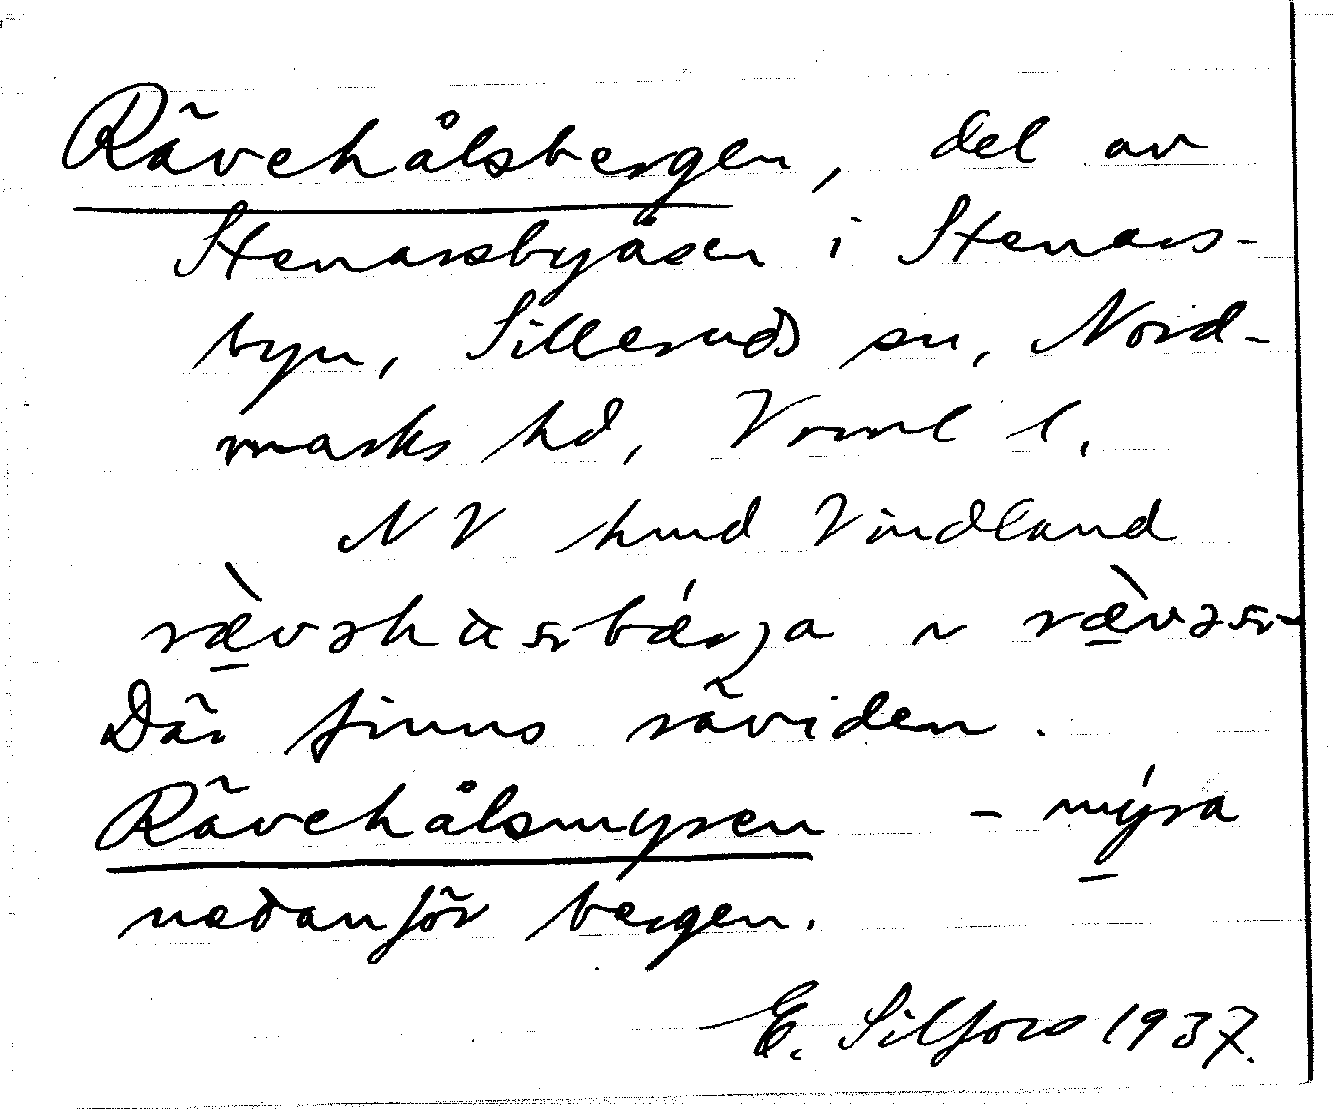 Rävehålsbergen, del av
Stenarsbyåsen i Stenars-
byn, Silleruds sn, Nord-
marks hd, Värml l.
NV hmd Vindland
rævəhàsrbǽrja ~ rævəsr-
Där finns räviden.
Rävehålsmyren - mýra
nedanför bergen.
E. Silfors 1937.